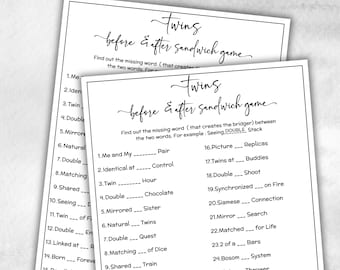 twins
before & after sandwich game
Find out the missing word ( that creates the bridger) between
the two words. For
1.Me
2.
3.Twin
4.
5.
6.Natural
7.Double
8.
9.Shared
10.Seeing
11.Twin ___ of
12.Double ___
13.Linked at ___
14.Born ___
twins
before & after sandwich game
Find out the missing word ( that creates the bridger) between
the two words. For example : Seeing DOUBLE Stack
1.Me and My _______ Pair
2.Identical at _____ Control
3.Twin _______ Hour
4.Double _____ Chocolate
5.Mirrored ___ Sister
6.Natural ___ Twins
7.Double ___ Quest
8.Matching ___ of Dice
9.Shared ___ Train
16.Picture ___ Replicas
17.Twins at ___ Buddies
18.Double ___ Shoot
19.Synchronized ___ on Fire
20.Siamese ___ Connection
21.Mirror ___ Search
22.Matched ___ for Life
23.2 of a ___ Bars
___ System